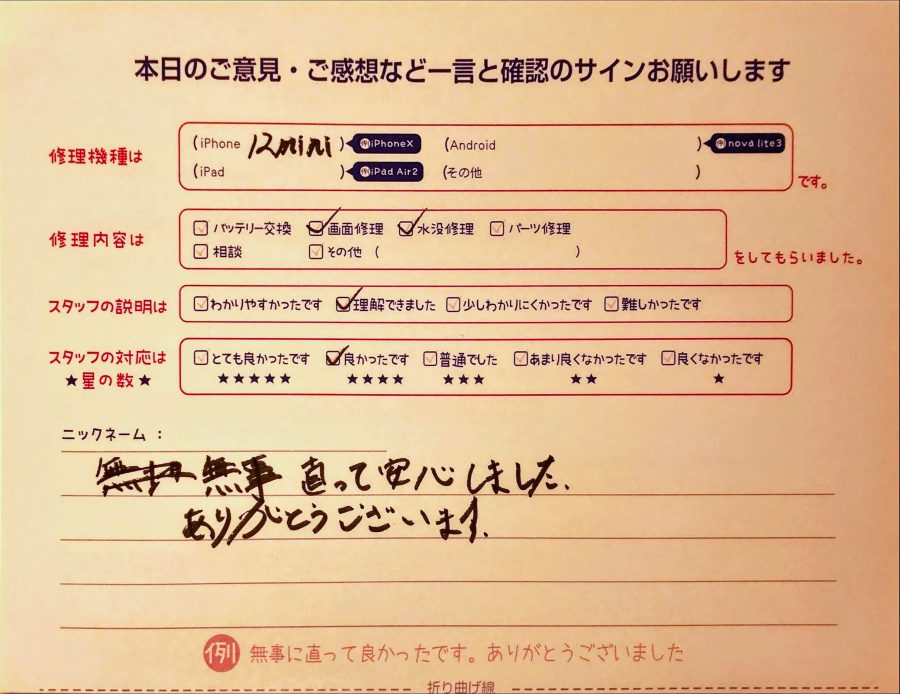 本日のご意見・ご感想など一言と確認のサインお願いします
修理機種は
(iPhone 12mini ) 例iPhoneX (Android ) 例nova lite3
(iPad ) 例iPad Air2 (その他 )
です。
修理内容は
バッテリー交換 画面修理 水没修理 パーツ修理
相談 その他 ( )
をしてもらいました。
スタッフの説明は
わかりやすかったです 理解できました 少しわかりにくかったです 難しかったです
スタッフの対応は
★星の数★
とても良かったです 良かったです 普通でした あまり良くなかったです 良くなかったです
★★★★★ ★★★★ ★★★ ★★ ★
ニックネーム：
無事 直って安心しました.
ありがとうございます.
例 無事に直って良かったです。ありがとうございました
折り曲げ線